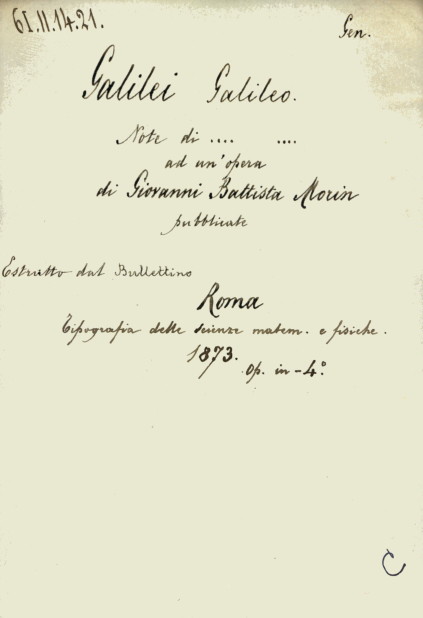 61.11.14.21.
Gen.
Galilei Galileo.
Note di .... ....
ad un'opera
di Giovanni Battista Morin
pubblicate
Estratto dal Bullettino
Roma
Tipografia delle scienze matem. e fisiche.
1873.
Op. in-4°.
C